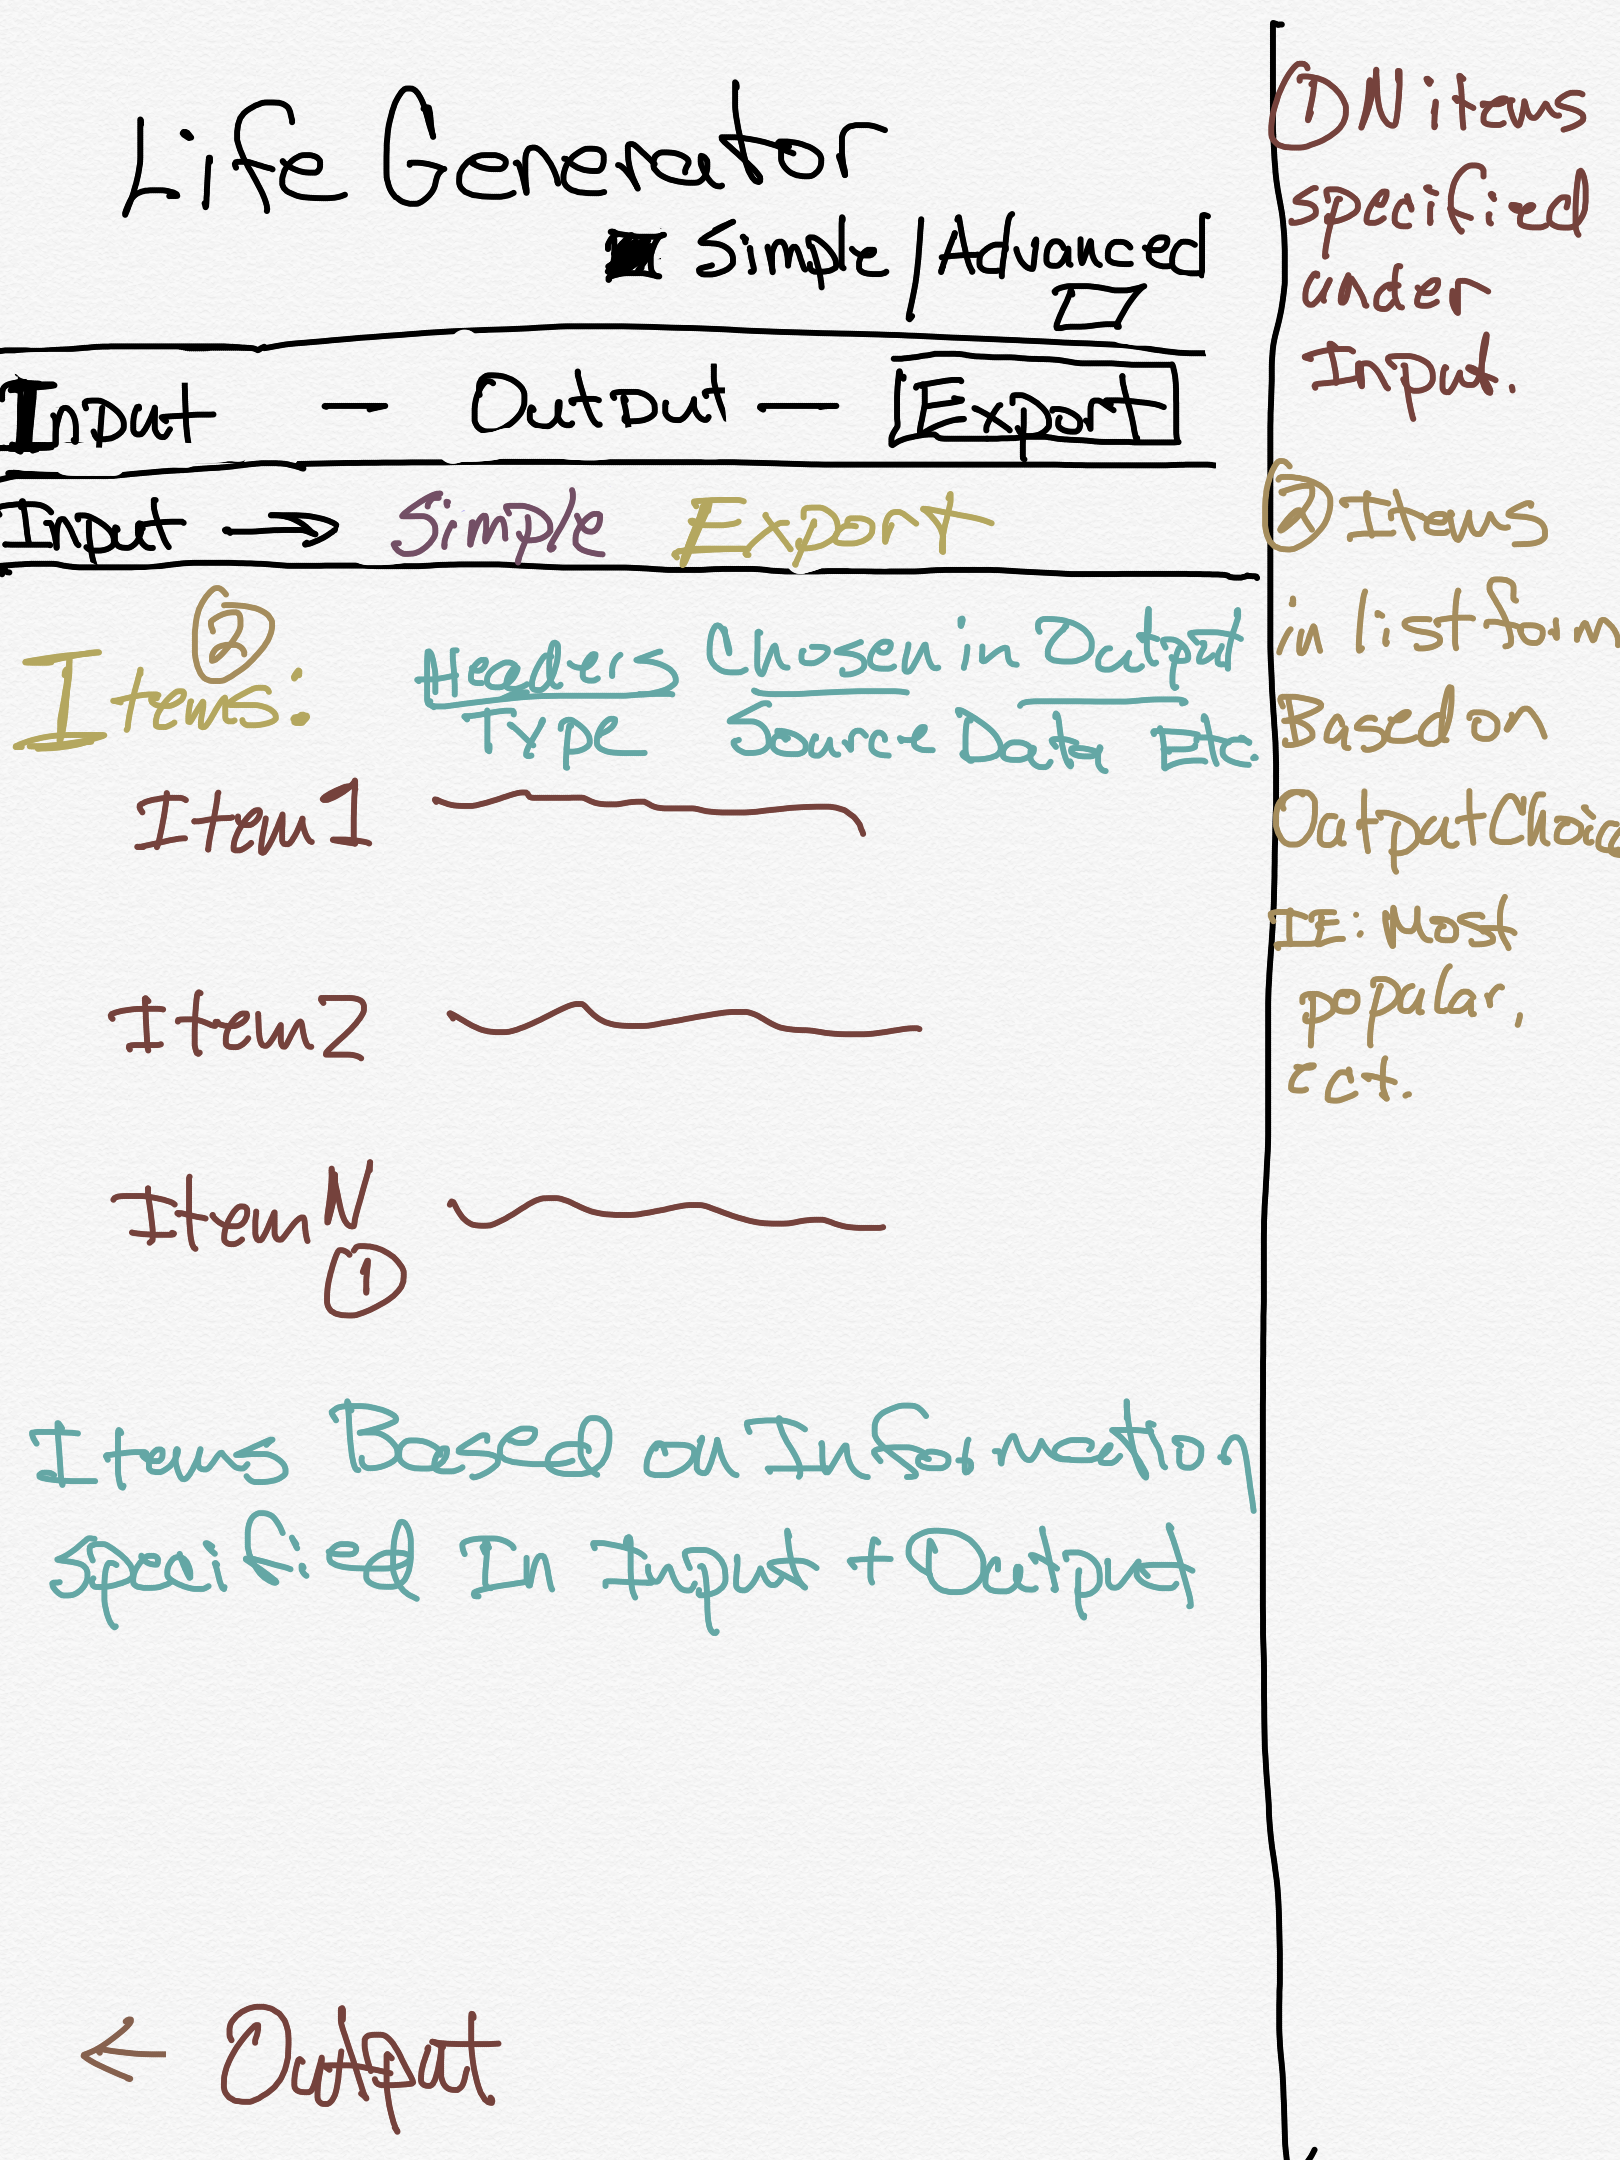 Life Generator
Simple / Advanced
Input — Output — Export
Input → Simple Export
Items: ②
Headers Chosen in Output
Type Source Data Etc.
Item 1
Item 2
Item N
①
Items Based on Information
specified In Input + Output
← Output
① N items
specified
under
Input.
② Items
in list form
Based on
Output Choice
IE: Most
popular,
ect.